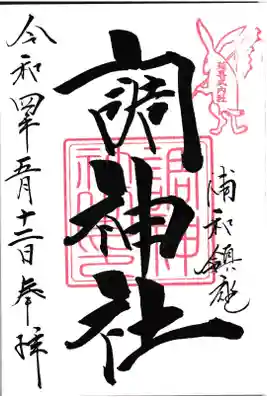 延喜式内社
浦和鎮座
調神社
令和四年五月十二日奉拝